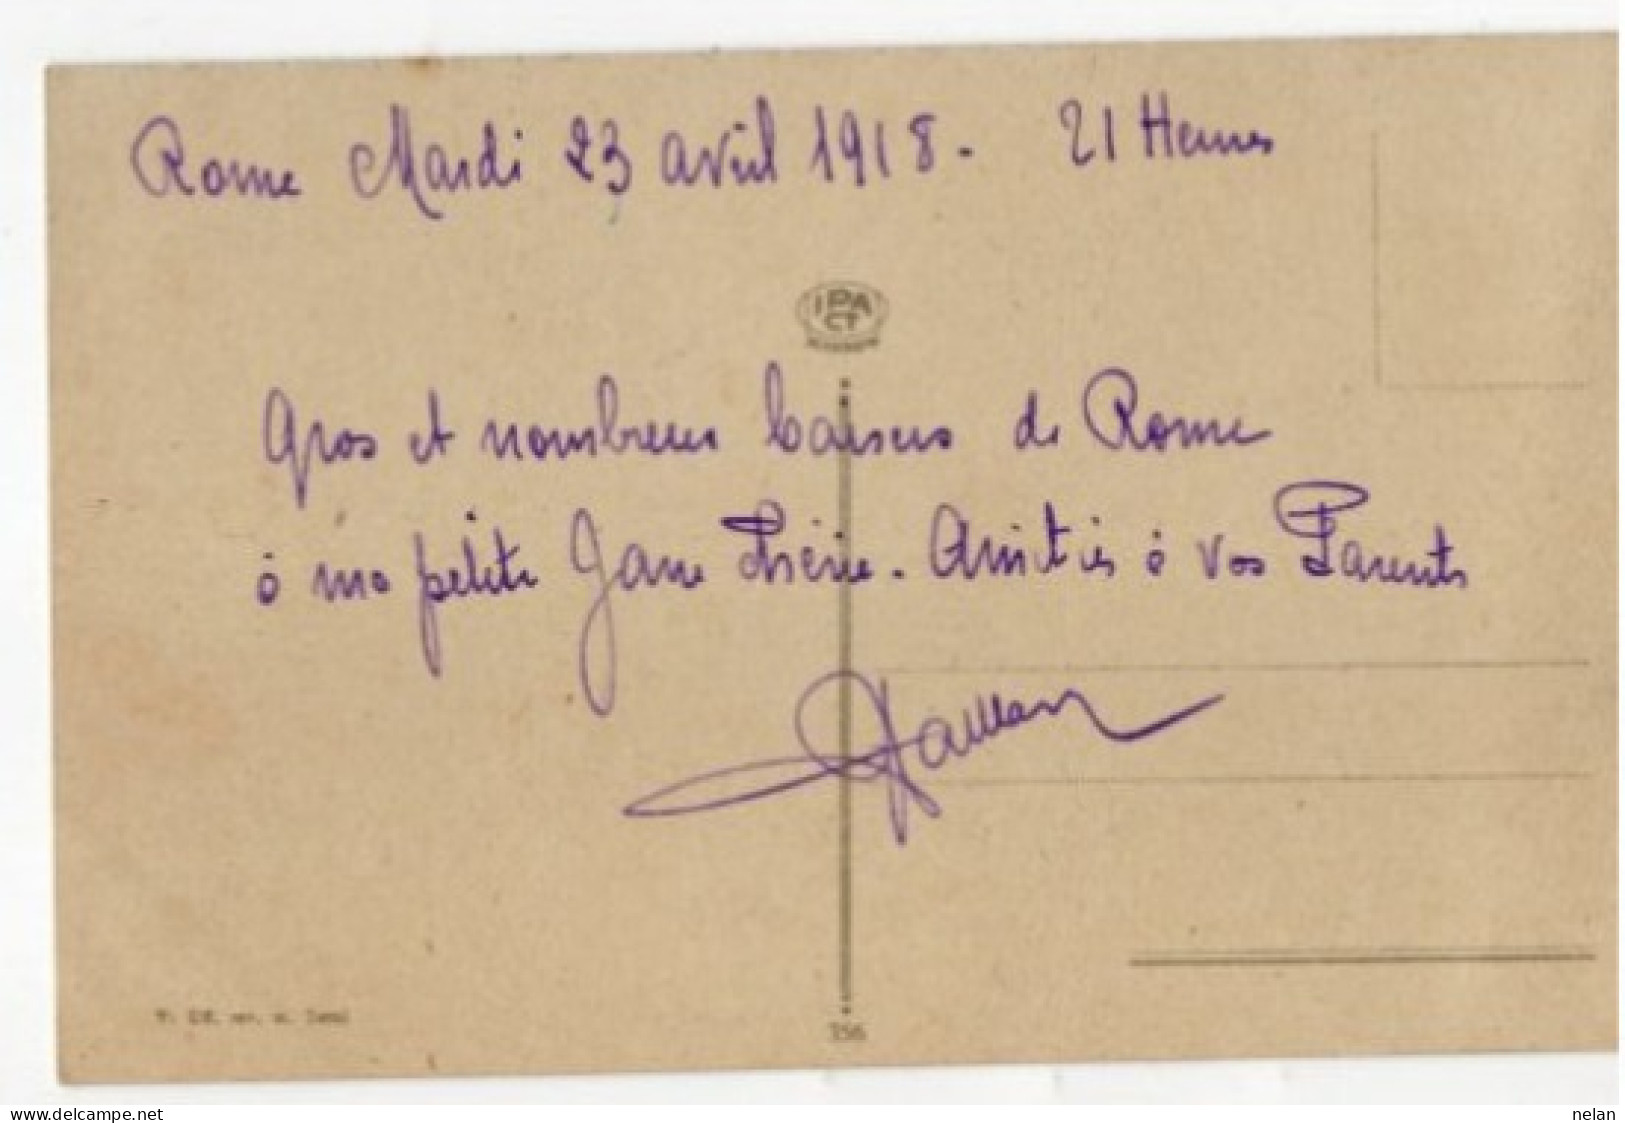 Rome Mardi 23 avril 1918 - 21 Heures
IPA
CT
Gros et nombreux baisers de Rome
à ma petite Jane chérie. Amitiés à vos Parents
156
www.delcampe.net
nelan